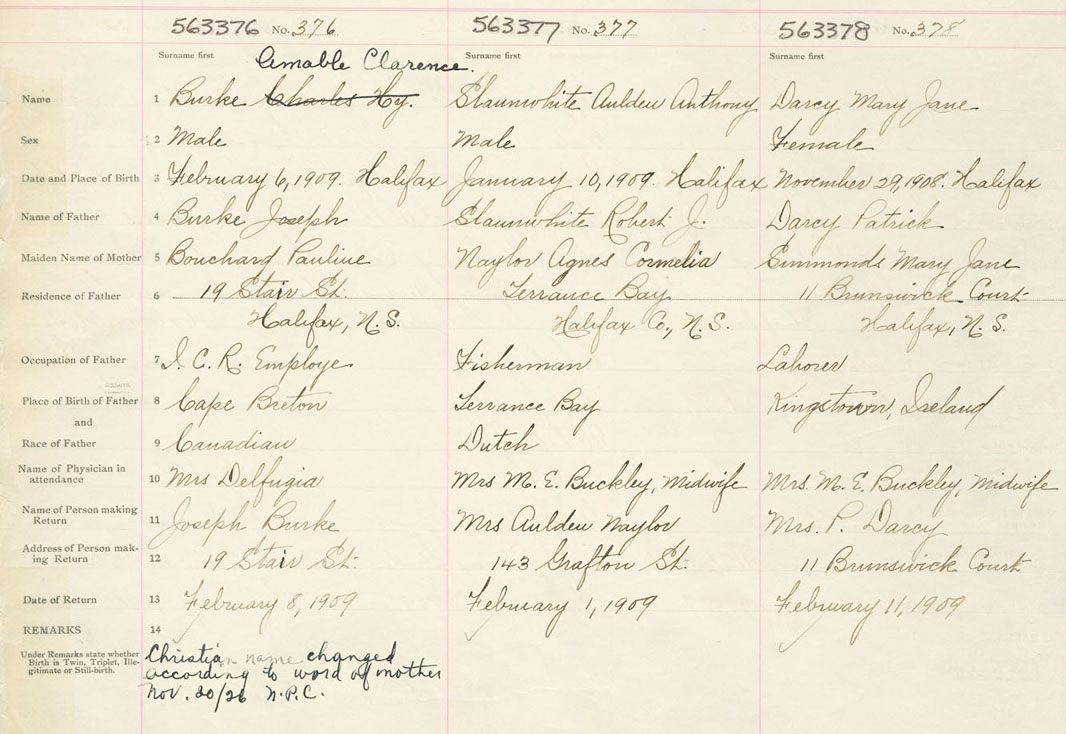 563376 No. 376 563377 No. 377 563378 No. 378
Surname first Surname first Surname first
Amable Clarence.
Name 1 Burke Charles Hy. Slaunwhite Aulden Anthony Darcy Mary Jane
Sex 2 Male Male Female
Date and Place of Birth 3 February 6, 1909. Halifax January 10, 1909 Halifax November 29, 1908. Halifax
Name of Father 4 Burke Joseph Slaunwhite Robert J. Darcy Patrick
Maiden Name of Mother 5 Bouchard Pauline Naylor Agnes Cormelia Simmonds Mary Jane
Residence of Father 6 19 Stair St. Terrance Bay 11 Brunswick Court
Halifax, N.S. Halifax Co., N.S. Halifax, N.S.
Occupation of Father 7 I.C.R. Employe Fisherman Laborer
Place of Birth of Father 8 Cape Breton Terrance Bay Kingstown, Ireland
and
Race of Father 9 Canadian Dutch
Name of Physician in
attendance 10 Mrs Delfugia Mrs M. E. Buckley, Midwife Mrs. M. E. Buckley, Midwife
Name of Person making
Return 11 Joseph Burke Mrs Aulden Naylor Mrs. P. Darcy
Address of Person mak-
ing Return 12 19 Stair St. 143 Grafton St. 11 Brunswick Court
Date of Return 13 February 8, 1909 February 1, 1909 February 11, 1909
REMARKS 14
Under Remarks state whether
Birth is Twin, Triplet, Ille-
gitimate or Still-birth.
Christian name changed
according to word of mother
Nov. 20/26 N.P.C.